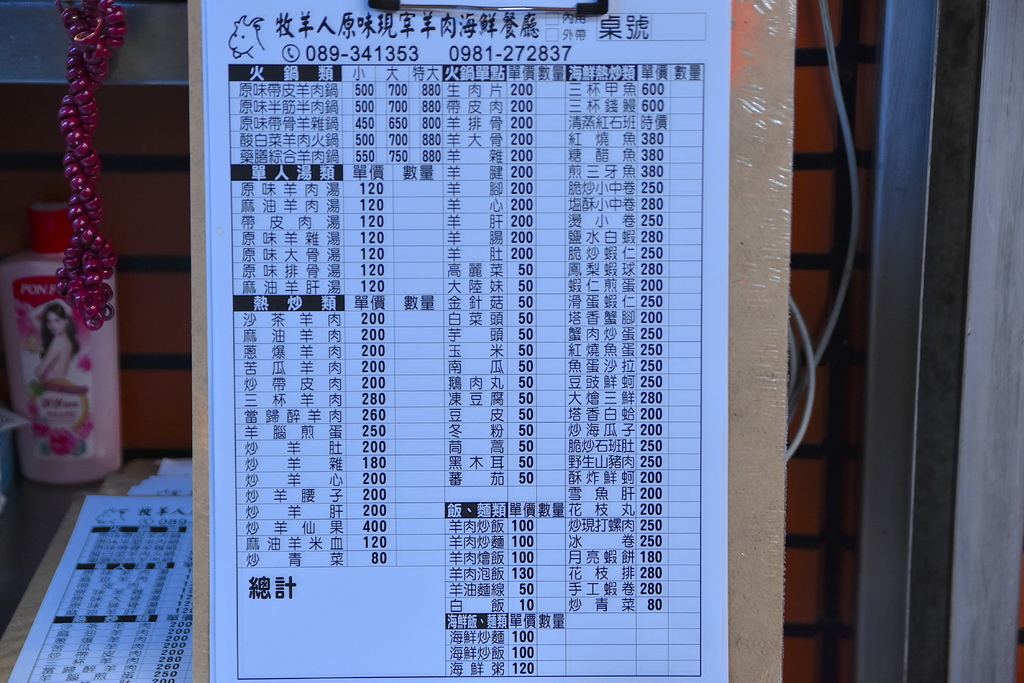 牧羊人原味現宰羊肉海鮮餐廳
內用
外帶
桌號
089-341353 0981-272837
火鍋類 小 大 特大
原味帶皮羊肉鍋 500 700 880
原味半筋半肉鍋 500 700 880
原味帶骨羊雜鍋 450 650 800
酸白菜羊肉火鍋 500 700 880
藥膳綜合羊肉鍋 550 750 880
單人湯類 單價 數量
原味羊肉湯 120
麻油羊肉湯 120
帶皮肉湯 120
原味羊雜湯 120
原味大骨湯 120
原味排骨湯 120
麻油羊肝湯 120
熱炒類 單價 數量
沙茶羊肉 200
麻油羊肉 200
蔥爆羊肉 200
苦瓜羊肉 200
炒帶皮肉 200
三杯羊肉 280
當歸醉羊肉 260
羊腦煎蛋 250
炒羊肚 200
炒羊雜 180
炒羊心 200
炒羊腰子 200
炒羊肝 200
炒羊仙果 400
麻油羊米血 120
炒青菜 80
總計
火鍋單點 單價 數量
生肉片 200
帶皮肉 200
羊排骨 200
羊大骨 200
羊雜 200
羊腱 200
羊腳 200
羊心 200
羊肝 200
羊腸 200
羊肚 200
高麗菜 50
大陸妹 50
金針菇 50
白菜頭 50
芋頭 50
玉米 50
南瓜 50
鵝肉丸 50
凍豆腐 50
豆皮 50
冬粉 50
茼蒿 50
黑木耳 50
蕃茄 50
飯、麵類 單價 數量
羊肉炒飯 100
羊肉炒麵 100
羊肉燴飯 100
羊肉泡飯 130
羊油麵線 50
白飯 10
海鮮飯、麵類 單價 數量
海鮮炒麵 100
海鮮炒飯 100
海鮮粥 120
海鮮熱炒類 單價 數量
三杯甲魚 600
三杯錢鰻 600
清蒸紅石班 時價
紅燒魚 380
糖醋魚 380
煎三牙魚 380
脆炒小中卷 250
塩酥小中卷 280
燙小卷 250
鹽水白蝦 280
脆炒蝦仁 250
鳳梨蝦球 280
蝦仁煎蛋 200
滑蛋蝦仁 250
塔香蟹腳 200
蟹肉炒蛋 250
紅燒魚蛋 250
魚蛋沙拉 250
豆豉鮮蚵 250
大燴三鮮 280
塔香白蛤 200
炒海瓜子 200
脆炒石班肚 250
野生山豬肉 250
酥炸鮮蚵 200
雪魚肝 200
花枝丸 200
炒現打螺肉 250
冰卷 250
月亮蝦餅 180
花枝排 280
手工蝦卷 280
炒青菜 80